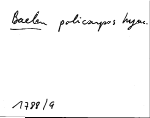 Baelen policarpos hyac.
1788/9